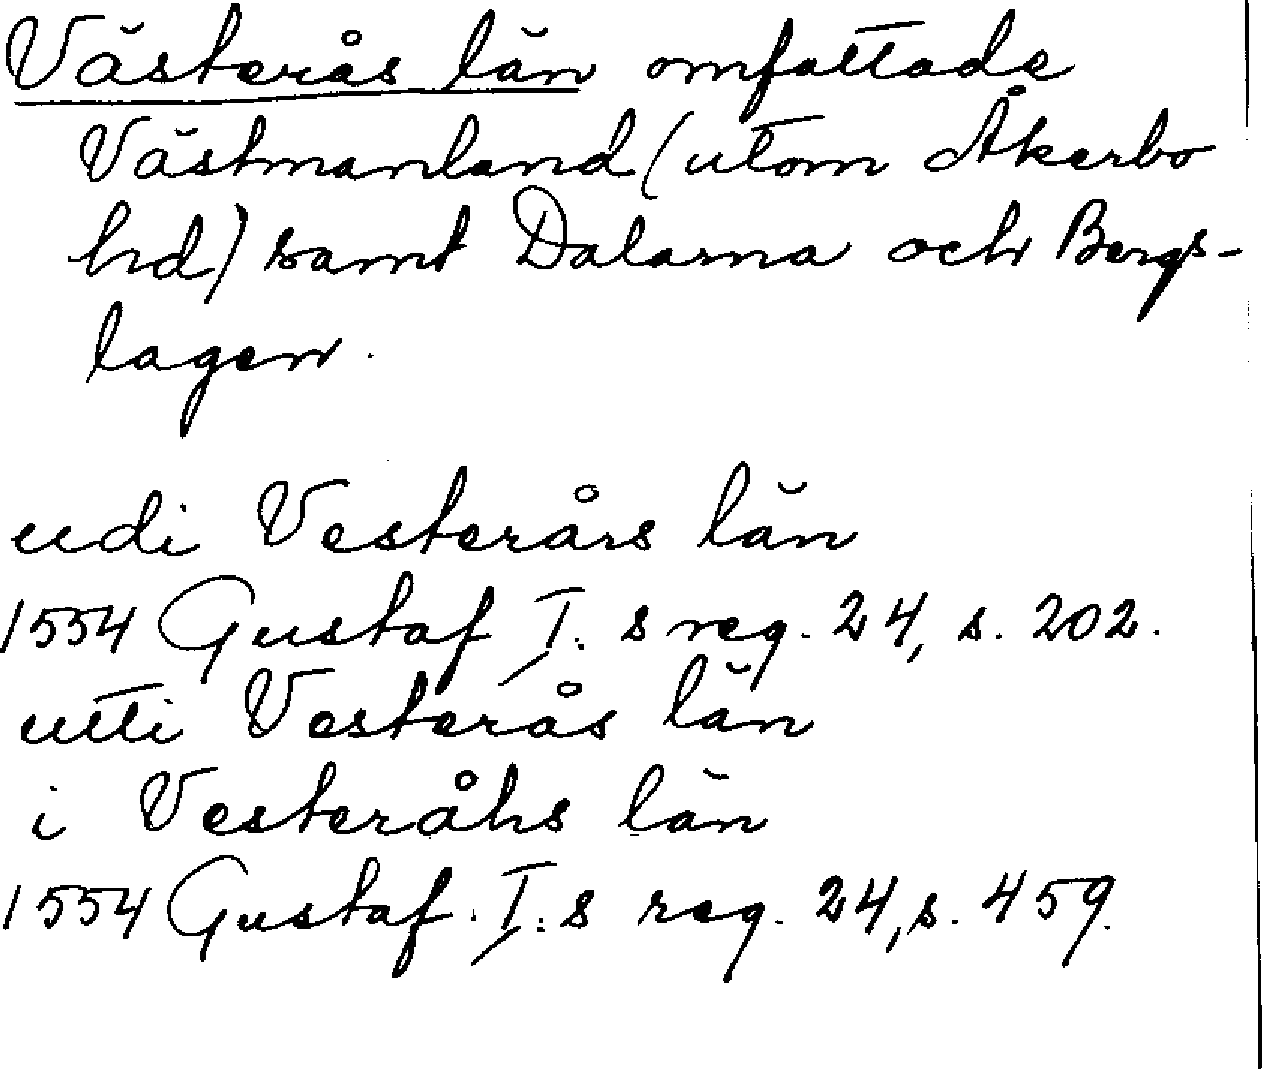 Västerås län omfattade
Västmanland (utom Åkerbo
hd) samt Dalarna och Bergs-
lagen.
udi Vesterårs län
1554 Gustaf I:s reg. 24, s. 202.
utti Vesterås län
i Vesteråhs län
1554 Gustaf. I:s reg. 24, s. 459.